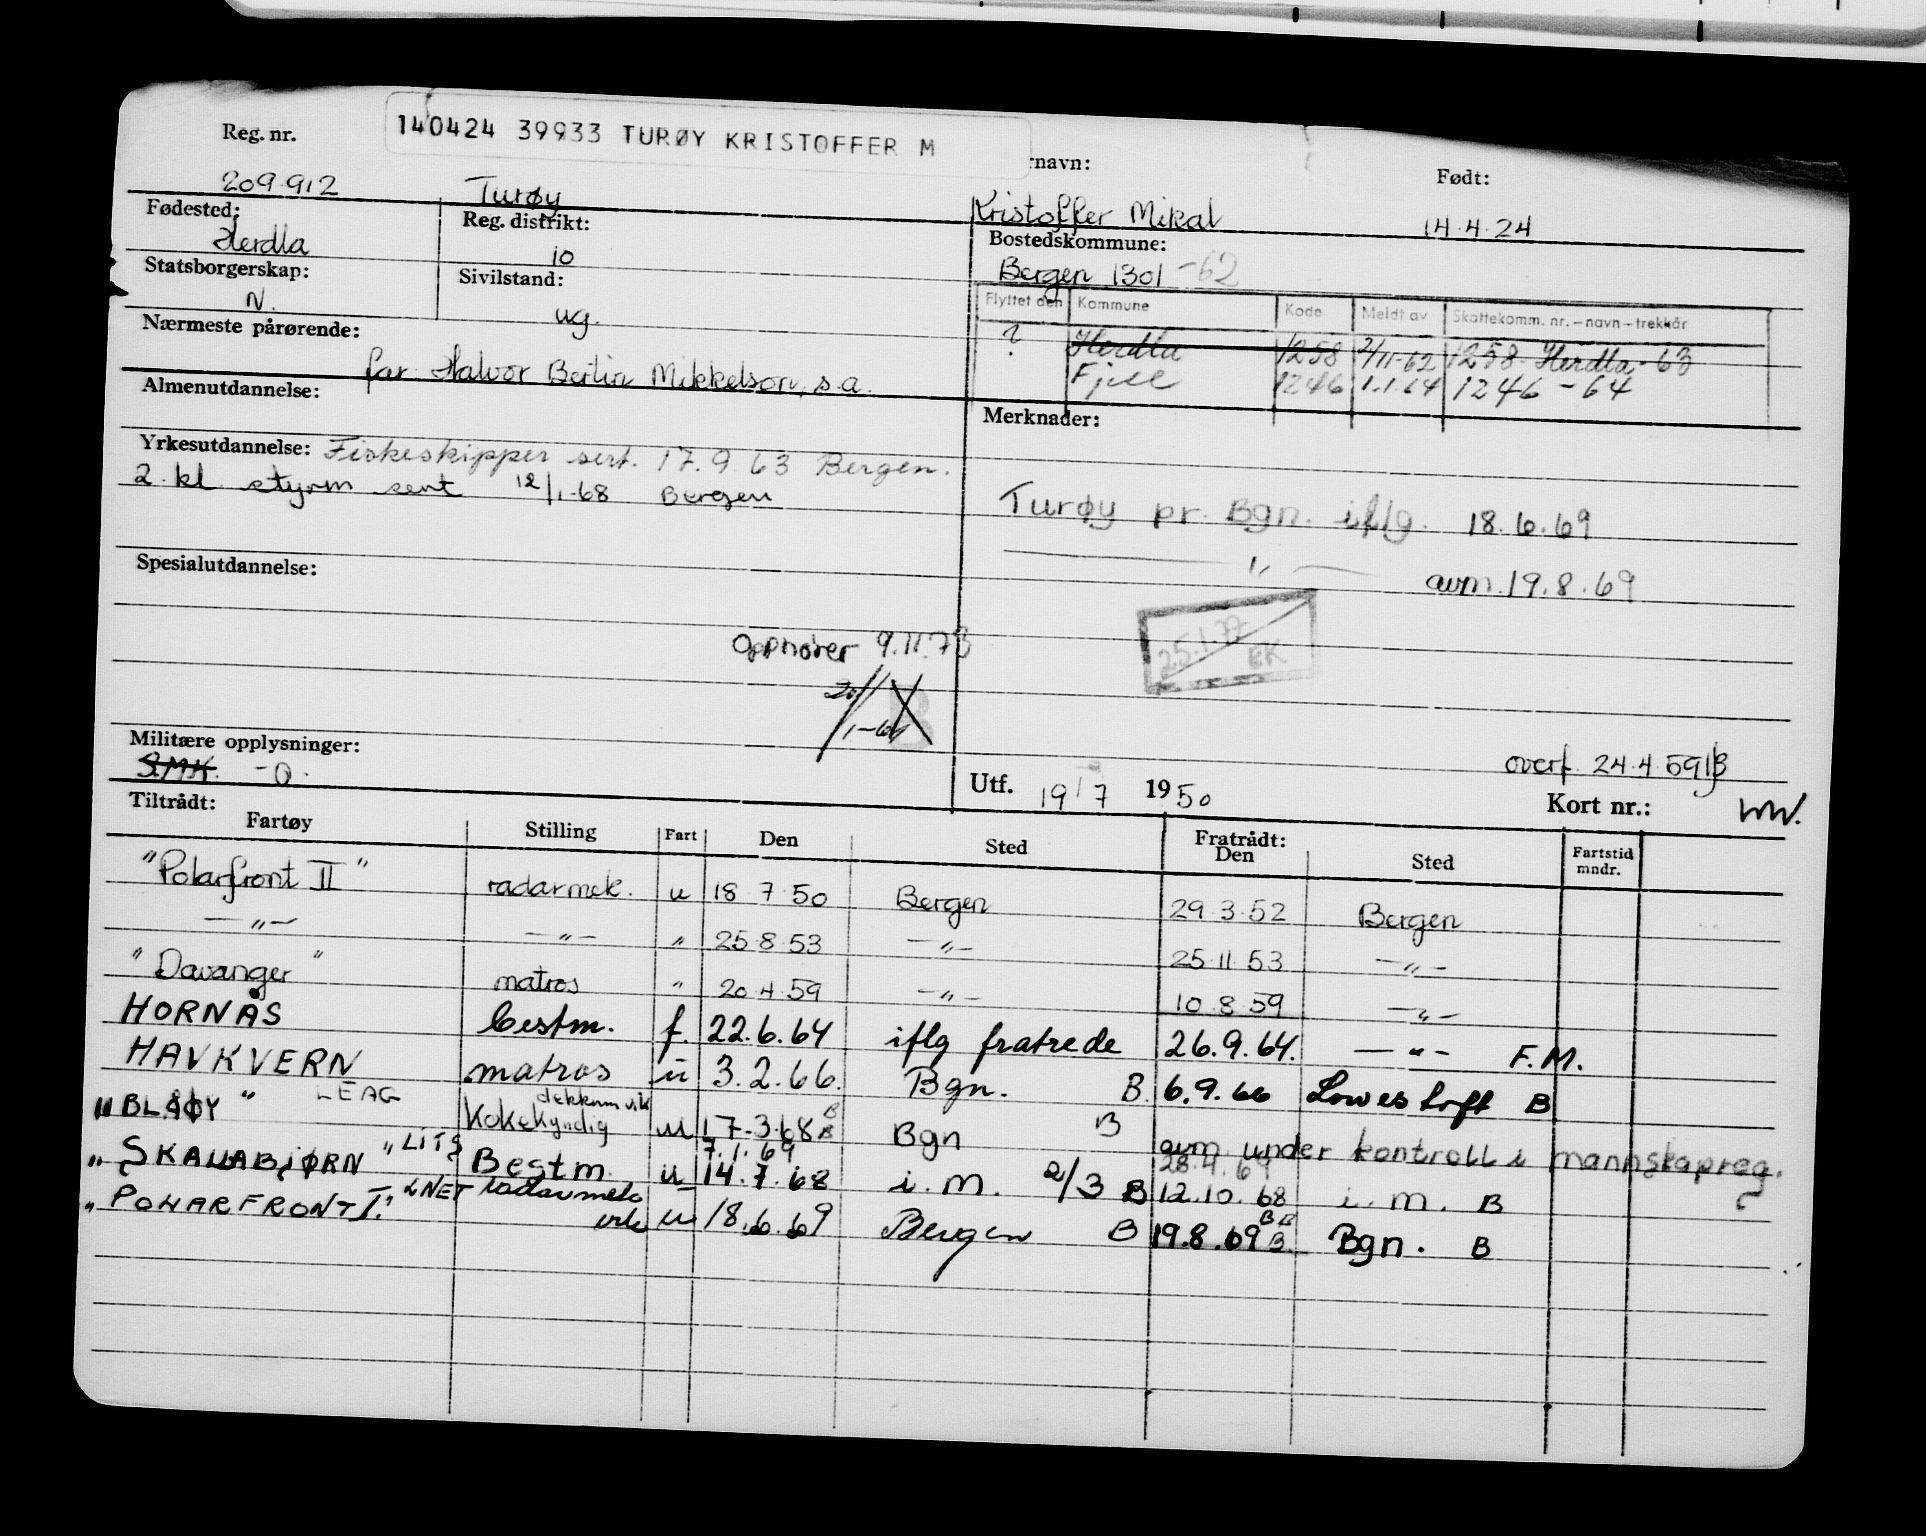 140424 39933 TURØY KRISTOFFER M
Reg. nr. rnavn: Født:
209.912 Turøy Kristoffer Mikal 14.4.24
Fødested: Reg. distrikt: Bostedskommune:
Herdla 10 Bergen 1301 -62
Statsborgerskap: Sivilstand:
N. ug.
Flyttet den Kommune Kode Meldt av Skattekomm. nr. – navn – trekkår
? Herdla 1258 2/11-62 1258 Herdla - 63
Fjell 1246 1.1.64 1246 - 64
Nærmeste pårørende:
far Halvor Berlin Mikkelson, s.a.
Almenutdannelse:
Merknader:
Yrkesutdannelse: Fiskeskipper sert. 17.9.63 Bergen.
2. kl. styrm sert 12/1-68 Bergen
Turøy pr. Bgn. iflg. 18.6.69
—— " —— avm. 19.8.69
Spesialutdannelse:
Opphører 9.11.73
25.1.77
EK
20/1-64 B
Militære opplysninger:
S.M.K. - O.
overf. 24.4.59 B
Utf. 19/7 1950 Kort nr.:
Tiltrådt: Fratrådt:
Fartøy Stilling Fart Den Sted Den Sted Fartstid mndr.
"Polarfront II" radarmek. u 18 7 50 Bergen 29.3.52 Bergen
—"— —"— " 25 8 53 —"— 25 11 53 —"—
"Davanger" matros " 20 4 59 —"— 10 8 59 —"—
HORNÅS bestm. f. 22.6.64 iflg fratrede 26.9.64. —"— F.M.
HAVKVERN matros u 3.2.66. Bgn. B. 6.9.66 Lowestoft B
"BLÅØY" LEAG dekksm vik
Kokekyndig u 17.3.68 B Bgn B avm under kontroll i mannskapsreg.
7.1.69 28.4.69
"SKALLABJØRN" LITG Bestm. u 14.7.68 i.m. 2/3 B 12.10.68 i.m. B
"POLARFRONT I." LNET radarmek
vik u 18.6.69 Bergen B 19.8.69 B Bgn. B